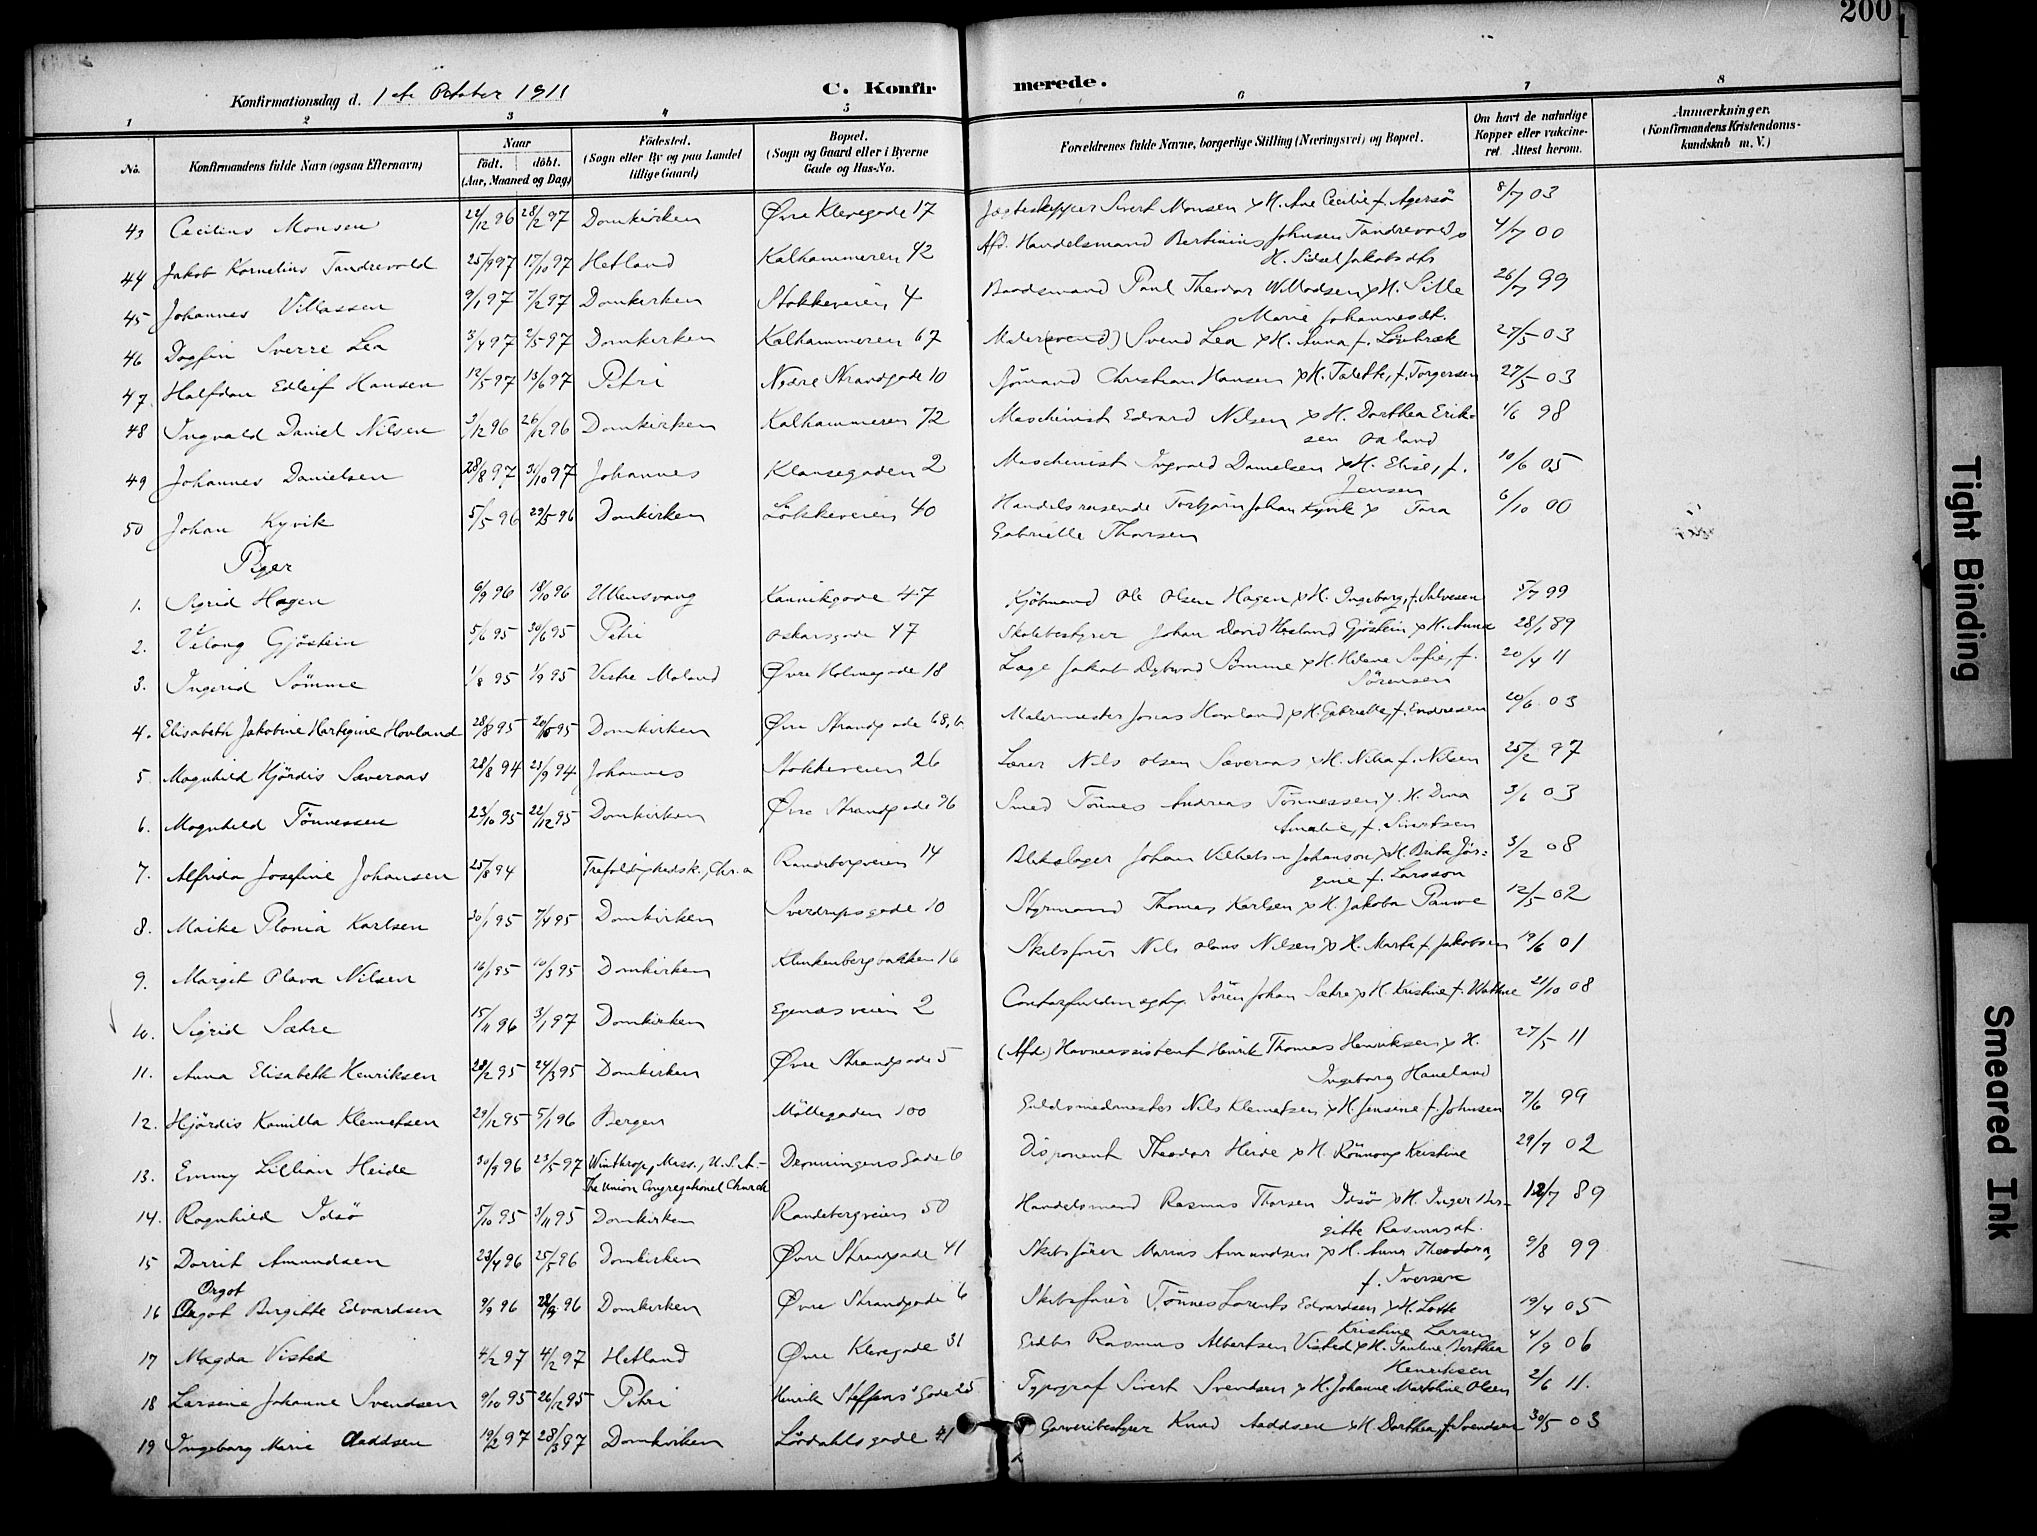 200
Konfirmationsdag d. 1ste October 1911
C. Konfirmerede.
1 2 3 4 5 6 7 8
No.
Konfirmandens fulde Navn (ogsaa Efternavn)
Naar
födt. döbt.
(Aar, Maaned og Dag)
Födested.
(Sogn eller By og paa Landet
tillige Gaard)
Bopæl.
(Sogn og Gaard eller i Byerne
Gade og Hus-No.
Forældrenes fulde Navne, borgerlige Stilling (Næringsvei) og Bopæl.
Om havt de naturlige
Kopper eller vaccineret. Attest herom.
Anmærkninger.
(Konfirmandens Kristendomskundskab m. V.)
43 Cecilius Monsen 22/12 96 28/2 97 Domkirken Øvre Klevegade 17 Jægteskipper Sivert Monsen & H. Ane Cecilie f. Agersö 8/7 03
44 Jakob Kornelius Tandrevold 25/9 97 17/10 97 Hetland Kalhammeren 42 Afd. Handelsmand Bertinius Johnsen Tandrevold &
H. Sidsel Jakobsdtr 4/7 00
45 Johannes Villassen 9/1 97 7/2 97 Domkirken Stokkeveien 4 Baadsmand Paul Theodor Willadsen & H. Sille
Marie Johannesdt. 26/7 99
46 Dagfin Sverre Lea 3/4 97 2/5 97 Domkirken Kalhammeren 67 Maler(svend) Svend Lea & H. Anna f. Lövbræk 27/5 03
47. Halfdan Edleif Hansen 12/5 97 13/6 97 Petri Nedre Strandgade 10 Sjömand Christian Hansen & H. Talette, f. Torgersen 27/5 03
48 Ingvald Daniel Nilsen 3/12 96 26/12 96 Domkirken Kalhammeren 72 Maschinist Edvard Nilsen & H. Dorthea Erik-
sen Oaland 1/6 98
49 Johannes Danielsen 28/8 97 31/10 97 Johannes Klausegaden 2 Maschinist Ingvald Danielsen & H. Elise, f.
Jensen 10/6 05
50 Johan Kyvik 5/5 96 29/5 96 Domkirken Lökkeveien 40 Handelsreisende Torbjörn Johan Kyvik & Tora
Gabrielle Thorsen 6/10 00
Piger
1. Sigrid Hagen 6/9 96 18/10 96 Ullensvang Kannikgade 47 Kjöbmand Ole Olsen Hagen & H. Ingeborg, f. Salvesen 5/7 99
2. Velaug Gjöstein 5/6 95 30/6 95 Petri Oskarsgade 47 Skolebestyrer Johan David Haaland Gjöstein & H. Anna 28/1 89
3. Ingerid Sömme 1/8 95 1/9 95 Vestre Moland Øvre Holmegade 18 Læge Jakob Dybwad Sömme & H. Helene Sofie, f.
Sörensen 20/4 11
4. Elisabeth Jakobine Hartegine Hovland 28/8 95 20/10 95 Domkirken Øvre Strandgade 68, Malermester Jonas Hovland & H. Gabrielle, f. Endresen 20/6 03
5 Magnhild Hjördis Sæveraas 28/8 94 23/9 94 Johannes Stokkeveien 26 Lærer Nils Olsen Sæveraas & H. Nilia f. Nilsen 25/2 97
6. Magnhild Tönnessen 23/10 95 22/12 95 Domkirken Øvre Strandg 96 Smed Tönnes Andreas Tönnessen & H. Dina
Amalie, f. Sivertsen 3/6 03
7. Alfrida Josefine Johansen 25/8 94 Trefoldighedsk., Chr.a Randebergveien 14 Blikslager Johan Vilhelm Johanson & H. Brita Jör-
gine f. Larsson 3/2 08
8. Maike Plonia Karlsen 30/1 95 7/4 95 Domkirken Sverdrupsgade 10 Styrmand Thomas Karlsen & H. Jakoba Pauwe 12/5 02
9. Margit Olava Nilsen 16/1 95 10/3 95 Domkirken Klinkenbergbakken 16 Skibsförer Nils Olaus Nilsen & H. Marta f. Jakobsen 19/6 01
10. Sigrid Sætre 15/11 96 3/1 97 Domkirken Egenæsveien 2 Sören Johan Sætre & H. Kristine f. Watne 21/10 08
11. Anna Elisabeth Henriksen 28/2 95 24/3 95 Domkirken Øvre Strandgade 5 (Afd.) Havneassistent Henrik Thomas Henriksen & H.
Ingeborg Haueland 27/5 11
12. Hjördis Kamilla Klemetsen 29/12 95 5/1 96 Bergen Möllegaden 100 Guldsmedmester Nils Klemetsen & H. Jensine f. Johnsen 7/6 99
13. Emmy Lillian Heide 30/9 96 23/5 97 Winthrop, Mass., U.S.A.-
The Union Congregational Church Dronningens Gade 6 Disponent Theodor Heide & H. Rönnaug Kristine 29/7 02
14. Ragnhild Idsö 5/10 95 3/11 95 Domkirken Randebergveien 50 Handelsmand Rasmus Thorsen Idsö & H. Inger Bir-
gitte Rasmusdt. 12/7 89
15 Dorrit Amundsen 23/4 96 25/5 96 Domkirken Øvre Strandgade 41 Skibsförer Marius Amundsen & H. Anna Theodora,
f. Iversen 9/8 99
Orgot
16 Orgot Birgitte Edvardsen 9/9 96 28/9 96 Domkirken Øvre Strandgade 6 Skibsförer Tönnes Lorents Edvardsen & H. Lotte
Kristine Larsen 19/4 05
17 Magda Visted 4/2 97 4/2 97 Hetland Øvre Klevegade 31 Rasmus Albertsen Visted & H. Pauline Berthea
Henriksen 4/9 06
18 Larsine Johanne Svendsen 9/10 95 26/12 95 Petri Henrik Steffens' Gade 25 Typograf Sivert Svendsen & H. Johanne Martine Olsen 2/6 11.
19 Ingeborg Marie Aaddsen 19/2 97 28/3 97 Domkirken Lövdahlsgade 41 Garveribestyrer Knud Aaddsen & H. Dorthea, f. Svendsen 30/5 03
Tight Binding
Smeared Ink